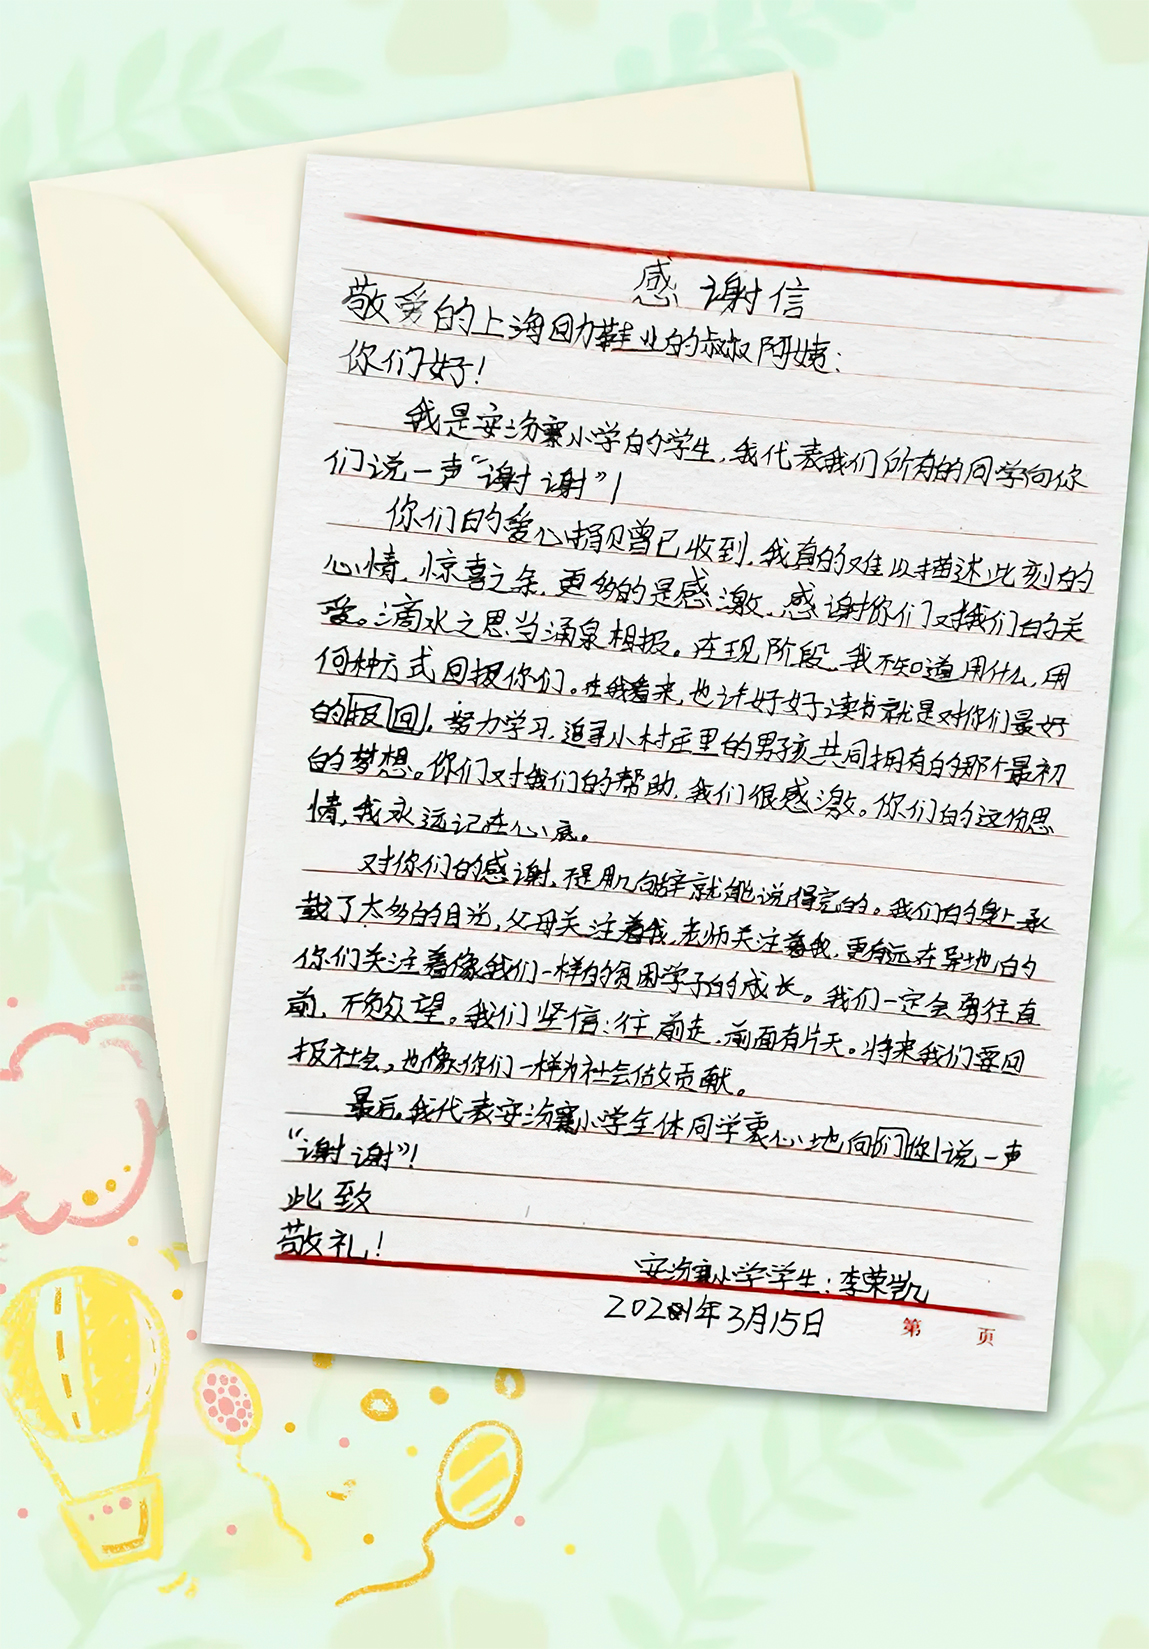 感谢信
敬爱的上海回力鞋业的叔叔阿姨：
你们好！
我是安汾寨小学的学生，我代表我们所有的同学向你
们说一声“谢谢”！
你们的爱心捐赠已收到，我真的难以描述此刻的
心情，惊喜之余，更多的是感激，感谢你们对我们的关
爱。滴水之恩当涌泉相报。在现阶段，我不知道用什么，用
何种方式回报你们。在我看来，也许好好读书就是对你们最好
的报回，努力学习，追寻小村庄里的男孩共同拥有的那个最初
的梦想。你们对我们的帮助，我们很感激。你们的这份恩
情，我永远记在心底。
对你们的感谢，不是几句辞就能说得完的。我们的身上承
载了太多的目光，父母关注着我，老师关注着我，更有远在异地的
你们关注着像我们一样的贫困学子的成长。我们一定会勇往直
前，不负众望。我们坚信：往前走，前面有片天。将来我们要回
报社会，也像你们一样为社会做贡献。
最后，我代表安汾寨小学全体同学衷心地向们你说一声
“谢谢”！
此致
敬礼！
安汾寨小学学生：李荣凯
2021年3月15日
第 页